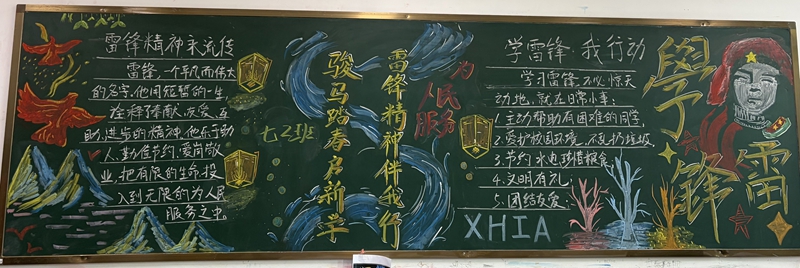 雷锋精神永流传
雷锋,一个平凡而伟大
的名字,他用短暂的一生
诠释了奉献、友爱、互
助、进步的精神,他乐于助
人、勤俭节约、爱岗敬
业,把有限的生命,投
入到无限的为人民
服务之中。
七2班
骏马踏春启新学
雷锋精神伴我行
为人民服务
学雷锋 我行动
学习雷锋,不必惊天
动地,就在日常小事:
1.主动帮助有困难的同学
2.爱护校园环境,不乱扔垃圾
3.节约水电,珍惜粮食
4.文明有礼
5.团结友爱
XHIA
學雷锋